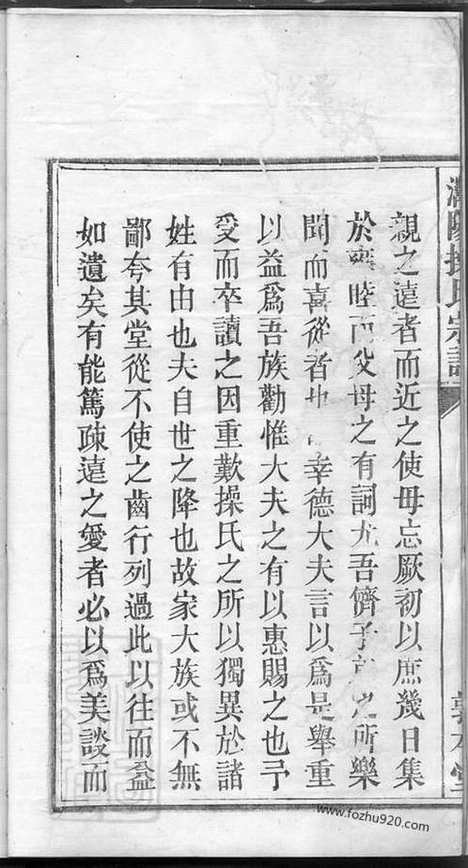 潯陽操氏宗譜
敦本堂
親之遠者而近之使毋忘厥初以庶幾日集
於 睦而父母之有詞尤吾儕子 之所樂
聞而喜從者也 幸德大夫言以爲是舉重
以益爲吾族勸惟大夫之有以惠賜之也予
受而卒讀之因重歎操氏之所以獨異於諸
姓有由也夫自世之降也故家大族或不無
鄙夸其堂從不使之齒行列過此以往而益
如遺矣有能篤疎遠之愛者必以爲美談而
www.fozhu920.com